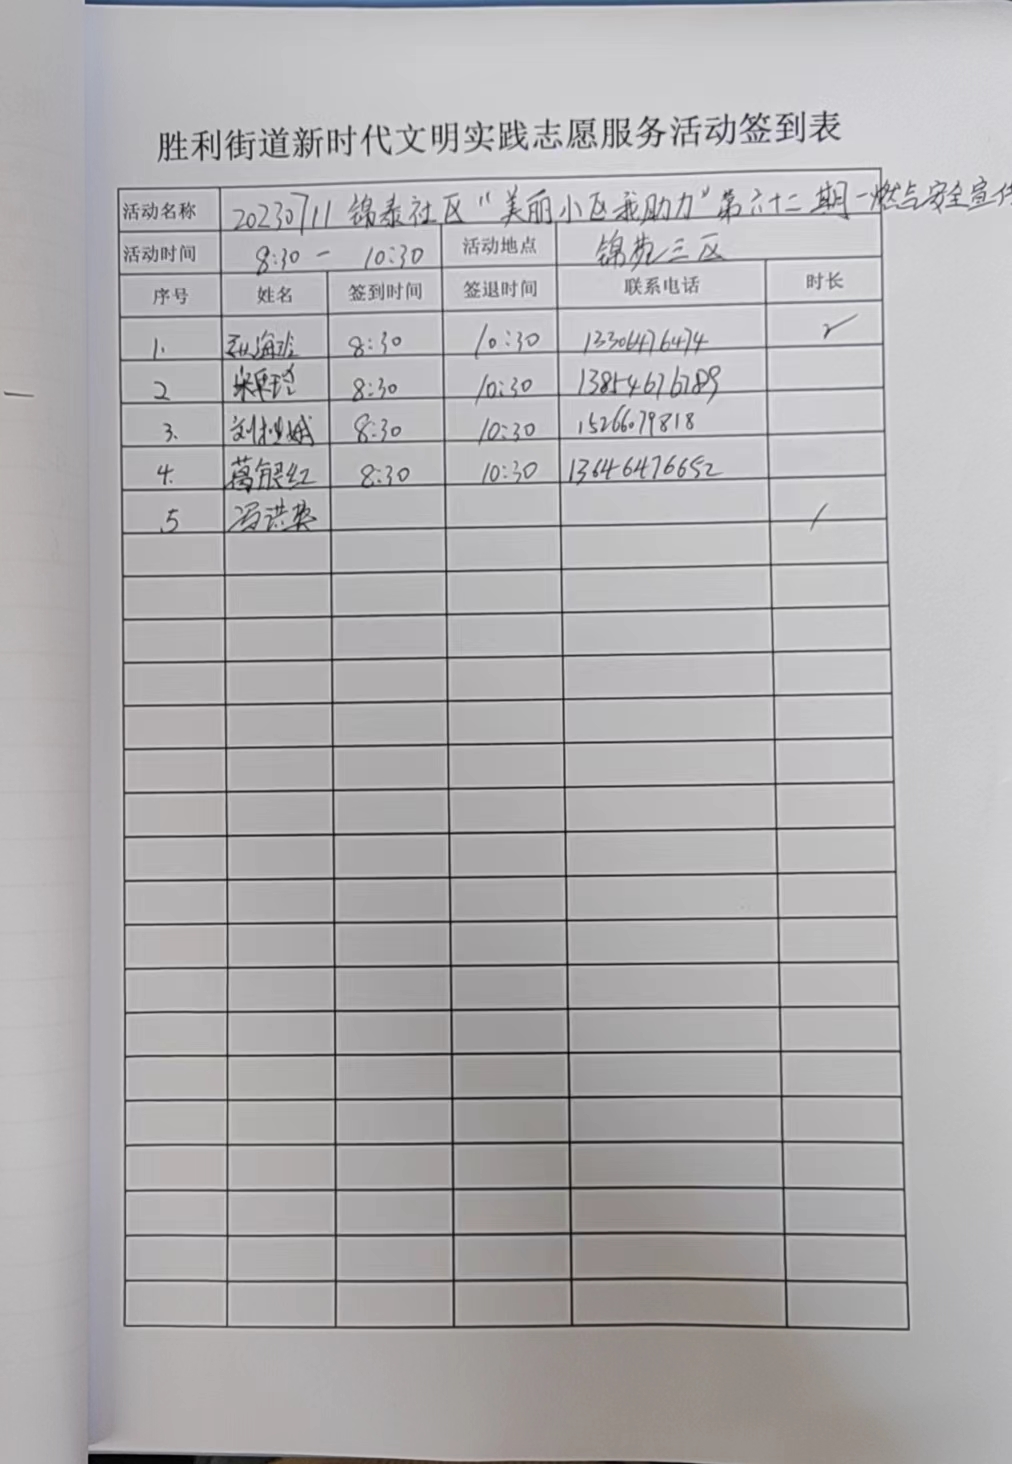 胜利街道新时代文明实践志愿服务活动签到表
活动名称 20230711 锦泰社区“美丽小区我助力”第六十二期—燃气安全宣传
活动时间 8:30 — 10:30 活动地点 锦苑三区
序号 姓名 签到时间 签退时间 联系电话 时长
1. 8:30 10:30 13306476474 2
2 8:30 10:30 13854676789
3. 8:30 10:30 15266079818
4. 葛银红 8:30 10:30 13646476652
5 冯洪英 /